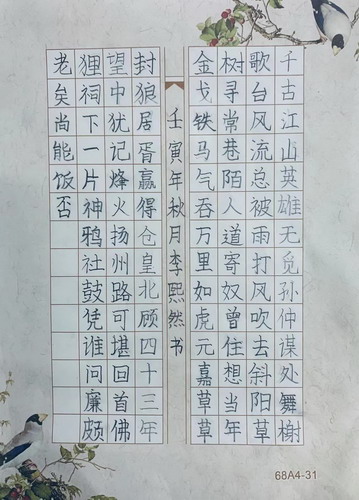 千古江山英雄无觅孙仲谋处舞榭
歌台风流总被雨打风吹去斜阳草
树寻常巷陌人道寄奴曾住想当年
金戈铁马气吞万里如虎元嘉草草
壬寅年秋月李熙然书
封狼居胥赢得仓皇北顾四十三年
望中犹记烽火扬州路可堪回首佛
狸祠下一片神鸦社鼓凭谁问廉颇
老矣尚能饭否
68A4-31